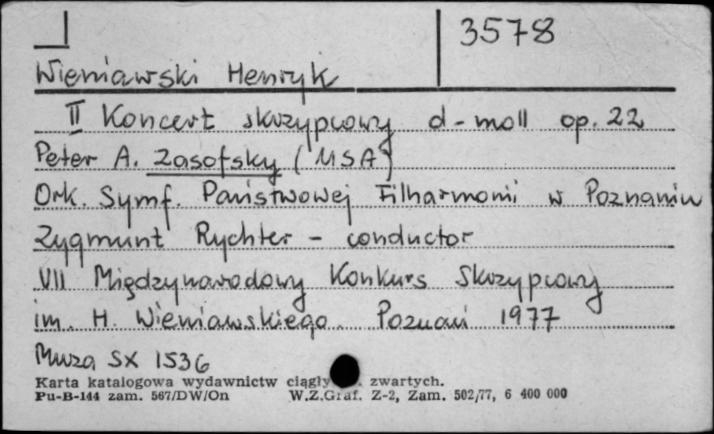 3578
Wieniawski Henryk
II Koncert skrzypcowy d-moll op. 22
Peter A. Zasofsky (USA)
Ork. Symf. Państwowej Filharmonii w Poznaniu
Zygmunt Rychter - conductor
VII Międzynarodowy Konkurs Skrzypcowy
im. H. Wieniawskiego. Poznań 1977
Muza SX 1536
Karta katalogowa wydawnictw ciągły zwartych.
Pu-B-144 zam. 567/DW/On W.Z.Graf. Z-2, Zam. 502/77, 6 400 000